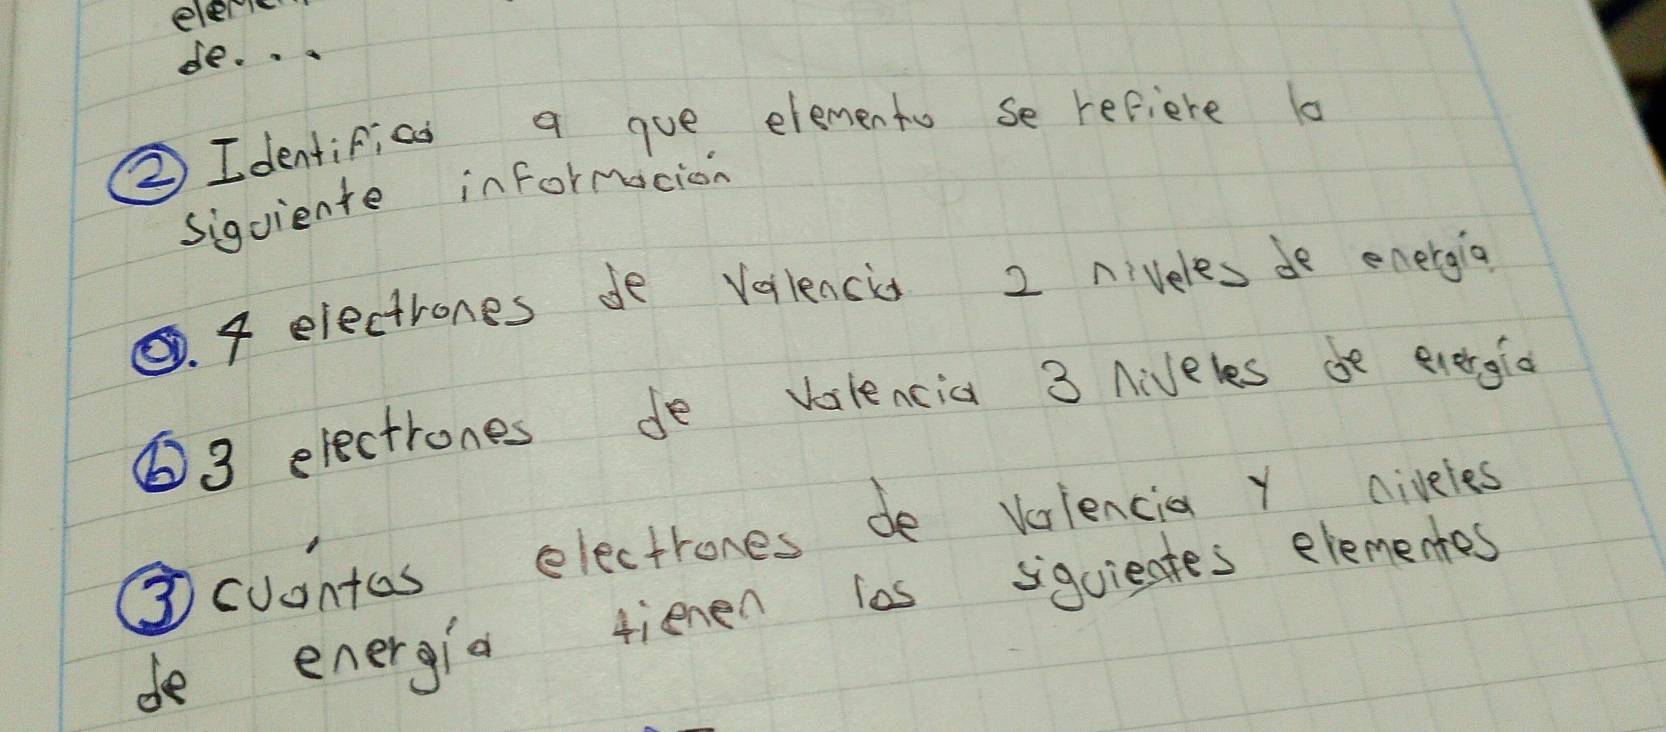 de...
② Identifica a que elemento se refiere la
siguiente información
a. 4 electrones de valencia 2 niveles de energía
b 3 electrones de valencia 3 niveles de energía
③ cuántos electrones de valencia y niveles
de energía tienen los siguientes elementos